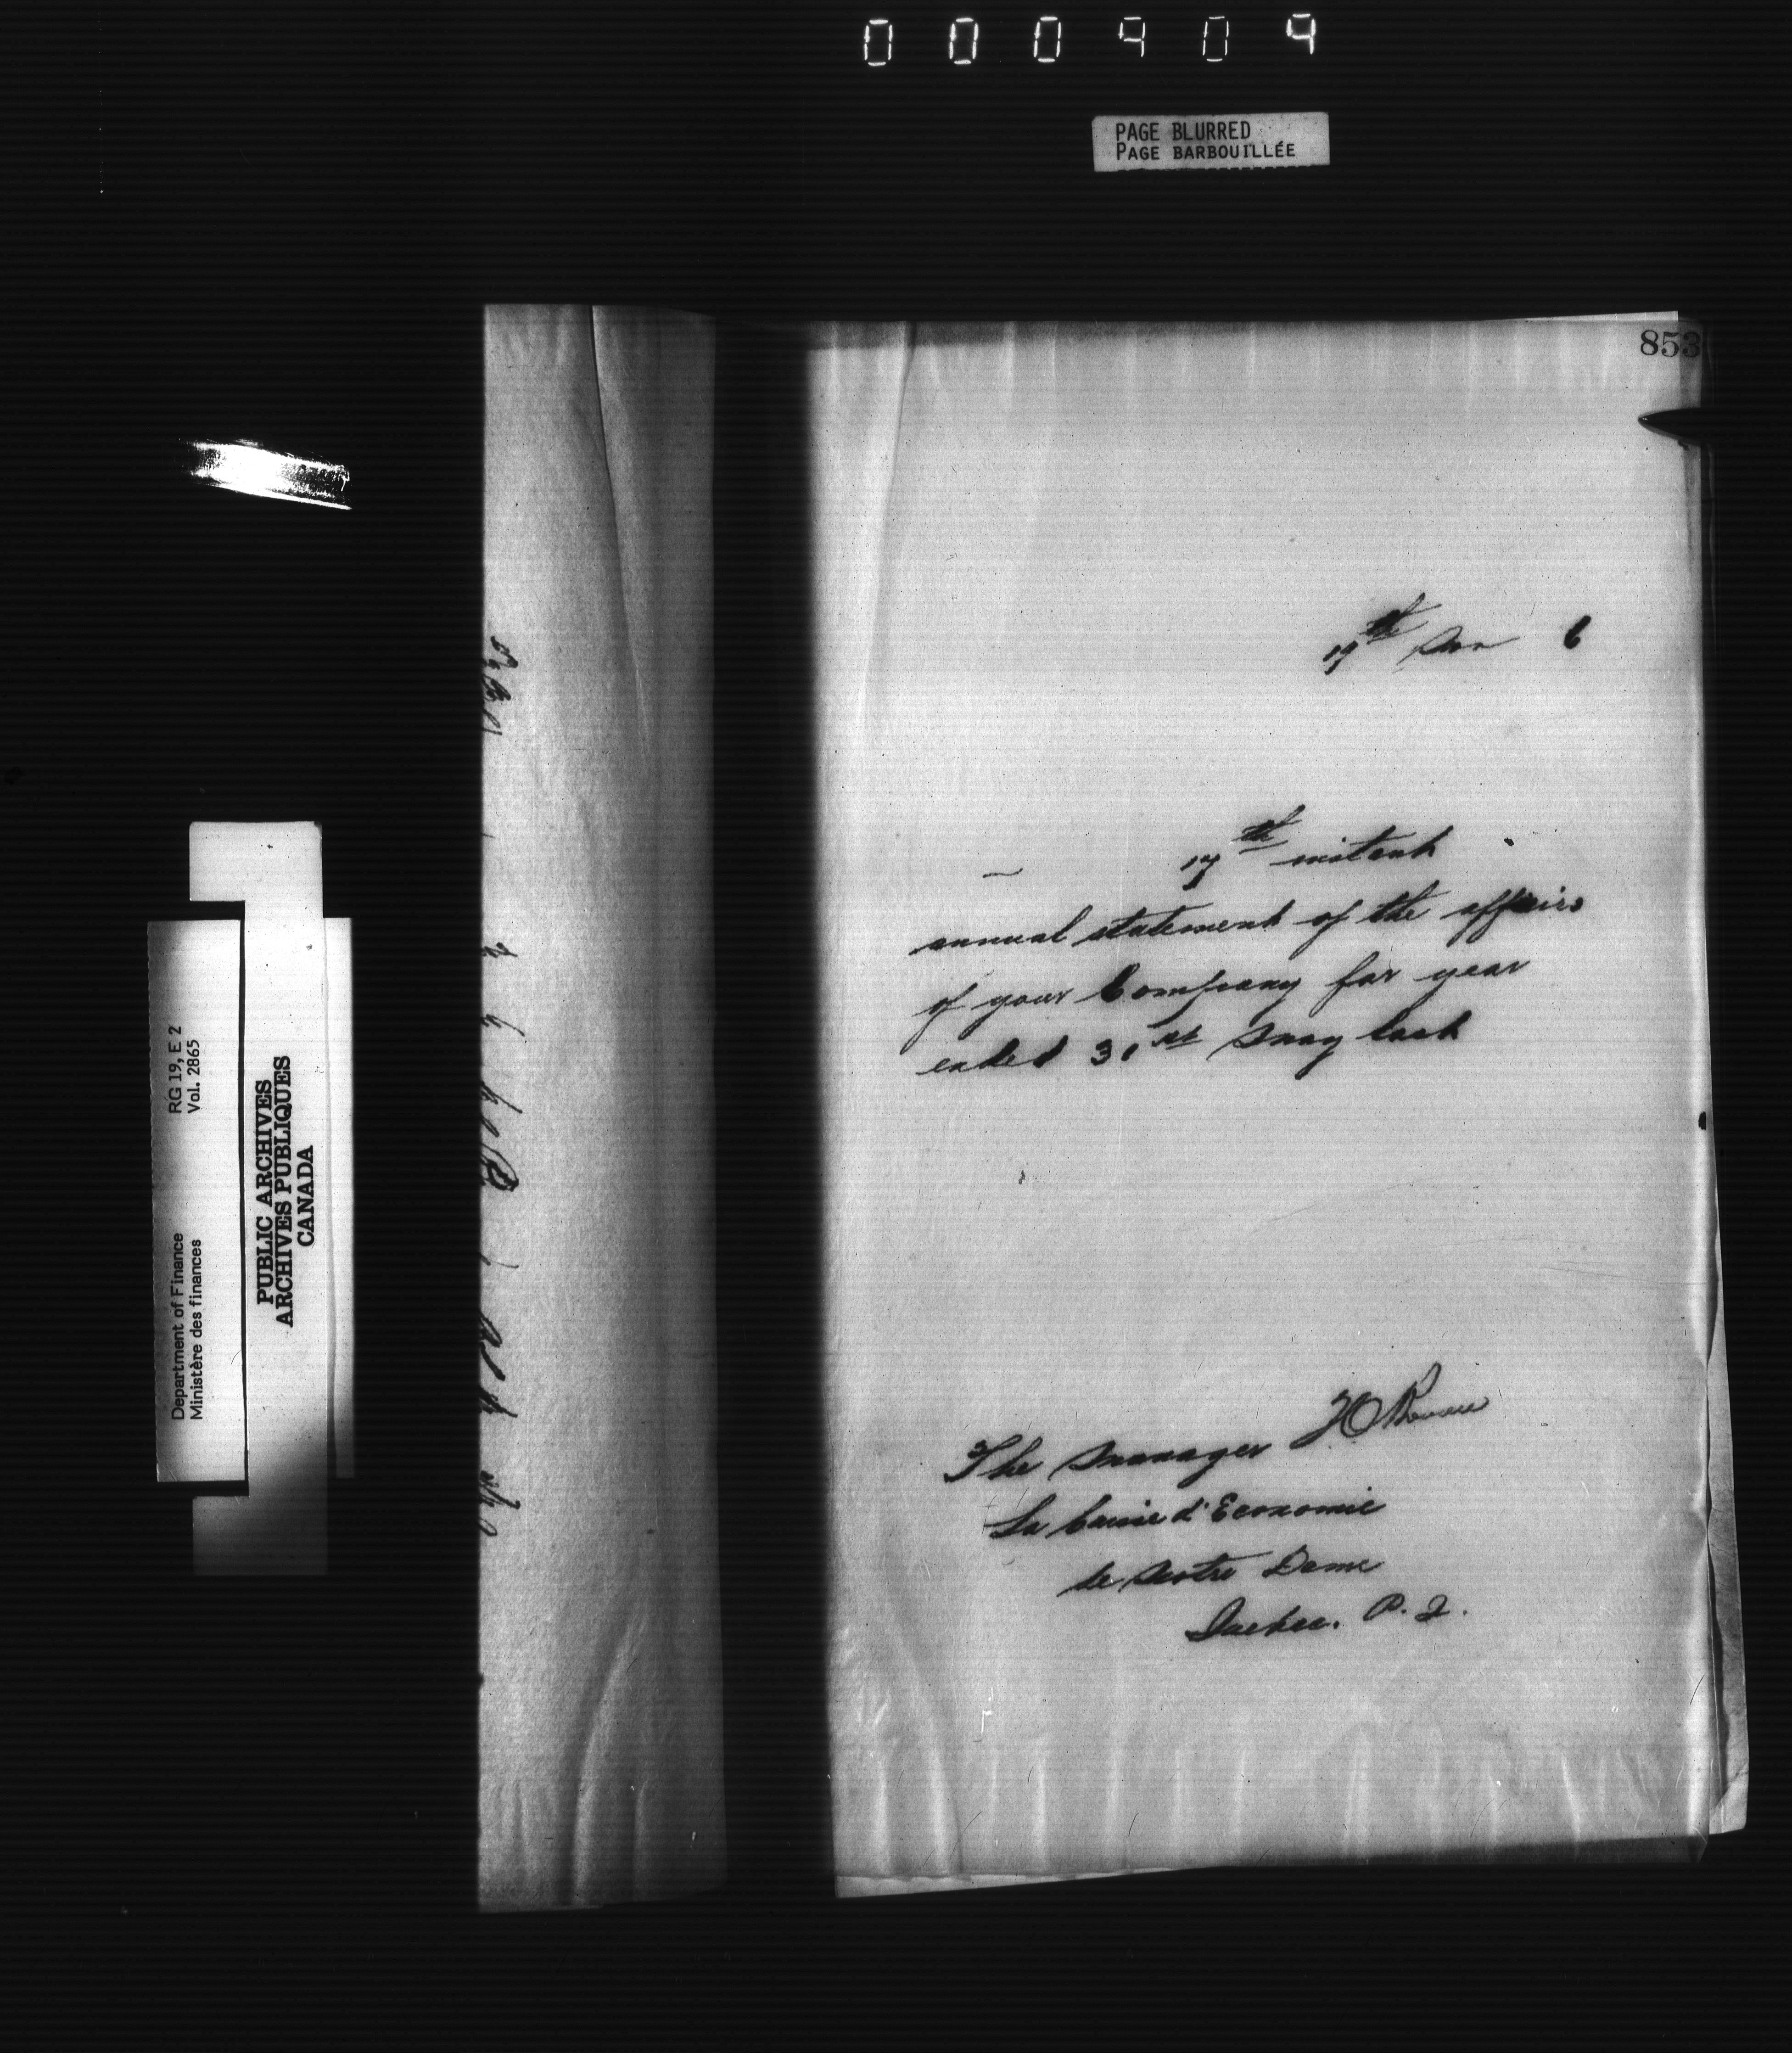 000404
PAGE BLURRED
PAGE BARBOUILLÉE
853
19th Nov 6
17th instant
annual statement of the affairs
of your Company for year
ended 31st May last
The Manager
La Caisse d'Economie
de Notre Dame
Quebec. P. Q.
Department of Finance RG 19, E 2
Ministère des finances Vol. 2865
PUBLIC ARCHIVES
ARCHIVES PUBLIQUES
CANADA